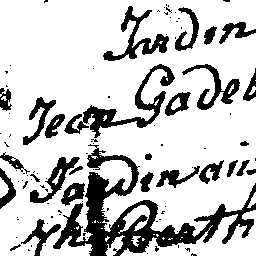 Jardin
Jean Gadeb
Jardin ain
Berth